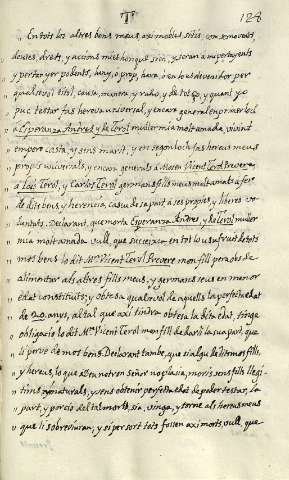 T
128
En tots los altres bens meus axi mobles sitis, com semovents,
deutes, drets, y accions mies hon que sien, y seran a mi pertanyents
y pertanyer podents, luny, o prop, hara, ô en lo esdevenidor per
qualsevol titol, causa, manera, y raho, y de tot ço, y quant yo
puc testar fas hereva universal, y encara general en primer loch
a Esperanza Andres, y de Terol muller mia molt amada, vivint
empero casta, y sens marit, y en segon loch fas hereus meus
propis universals, y encara generals a Mosen Vicent Terol Prevere,
a Lois Terol, y Carlos Terol germans fills meus molt amats a fer
de dits bens, y herencia, casu de sa part a ses propies, y liberes vo-
luntats. Declarant, que morta Esperanza Andres, y de Terol muller
mia molt amada vull, que succeixca en tot lo usufruit de tots
mos bens lo dit Mn. Vicent Terol Prevere mon fill per a des de
alimentar als altres fills meus, y germans seus en menor
edat constituits, y obtesa qualsevol de aquells la perfecta edat
de 20 anys, al tal que axi tindra obtesa la dita edat, tinga
obligacio lo dit Mn. Vicent Terol mon fill de darli la sua part, que
li pervé de mos bens. Declarant també, que si algu de dits mos fills,
y hereus, lo que a Deu nostron Señor no placia, moris sens fills llegi-
tims, y naturals, y sens obtenir perfecta edat de poder testar, la
part, y porcio del tal mort, sia, vinga, y torne als hereus meus
que li sobreviuran, y si per sort tots fossen axi morts, vull, que